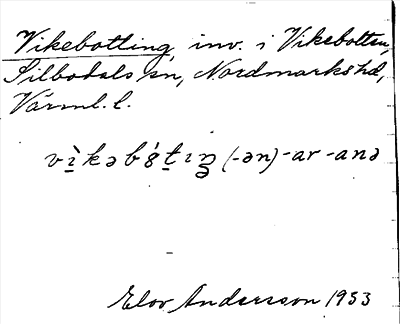 Vikebotting, inv. i Vikebotten,
Silbodals sn, Nordmarks hd,
Värml. l.
vì̠kəbȣ́t̠ıŋ (-ən) -ar -anə
Elov Andersson 1953